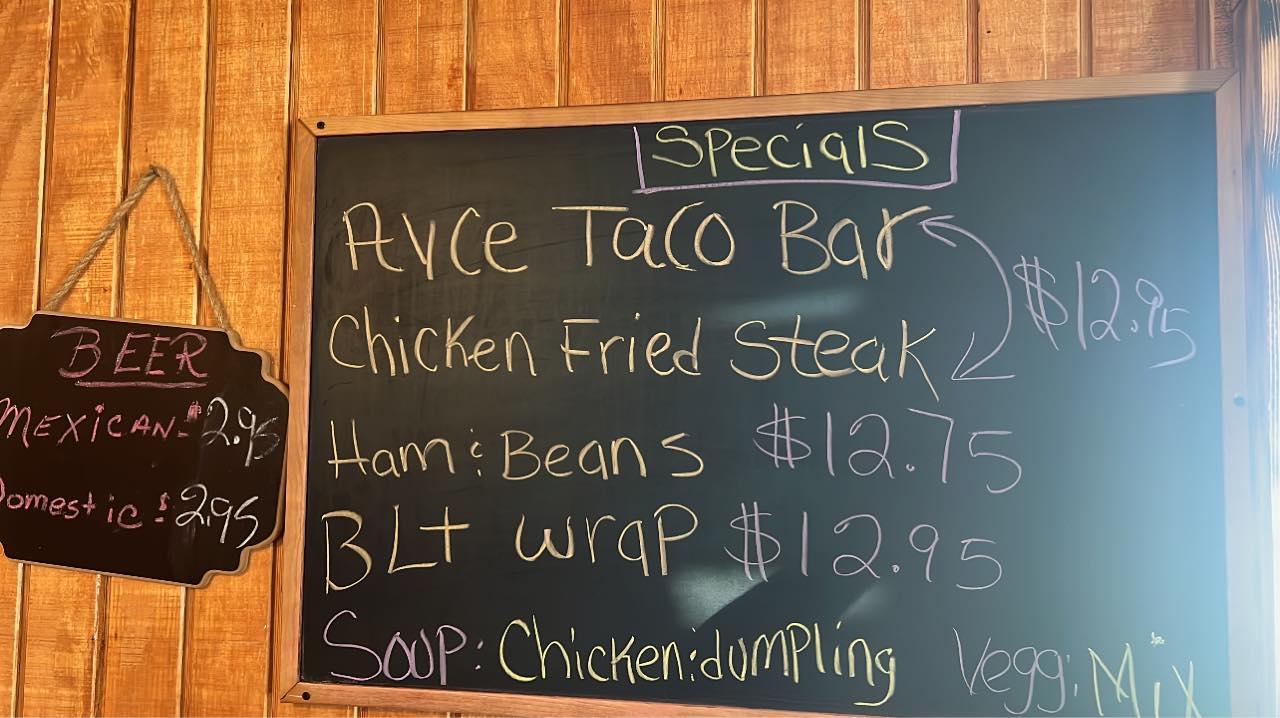 Specials
Ayce Taco Bar
$12.95
Chicken Fried Steak
Ham & Beans $12.75
BLt wrap $12.95
Soup: Chicken & dumpling Vegg: Mix
BEER
MEXICAN - $2.95
Domestic - $2.95